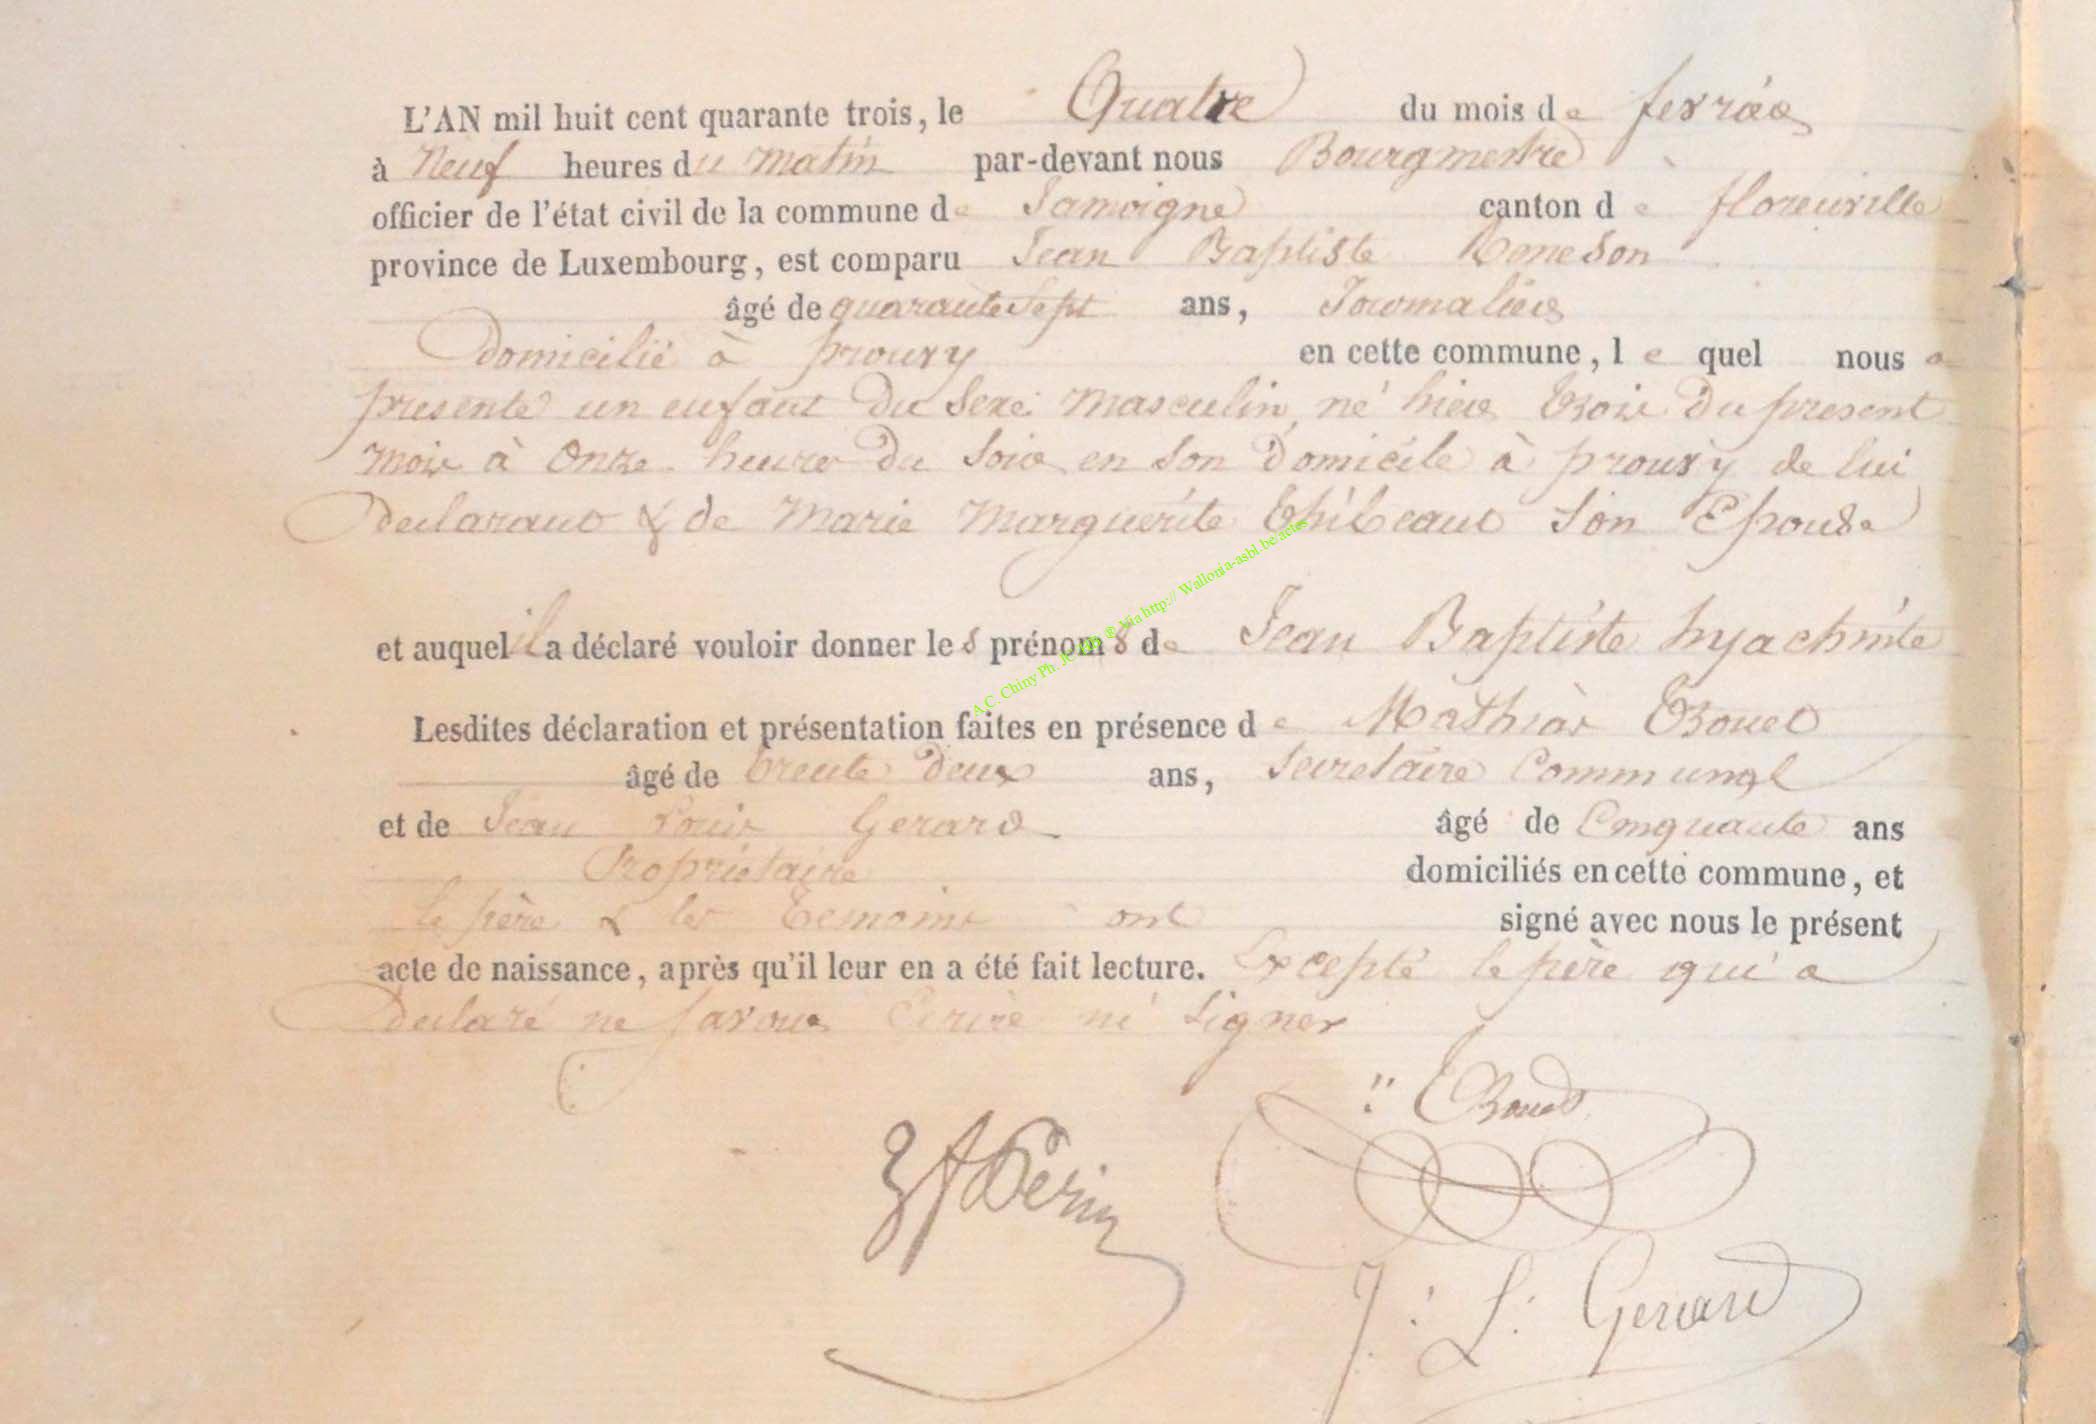 L'AN mil huit cent quarante trois, le Quatre du mois de fevrier
à Neuf heures du matin par-devant nous Bourgmestre
officier de l'état civil de la commune de Jamoigne canton de florenville
province de Luxembourg, est comparu Jean Baptiste
âgé de quarante sept ans, Journalier
Domicilié à prouvy en cette commune, le quel nous a
presenté un enfant Du Sexe masculin, né hier trois Du present
mois à Onze heures Du Soir en Son Domicile à prouvy de lui
Declarant & de Marie Marguerite Thibeaut Son Epouse
et auquel il a déclaré vouloir donner les prénoms de Jean Baptiste hyachinte
Lesdites déclaration et présentation faites en présence de Mathias
âgé de trente Deux ans, Secretaire Communal
et de Jean Louis Gerard âgé de Cinquante ans
Propriétaire domiciliés en cette commune, et
le père & les temoins ont signé avec nous le présent
acte de naissance, après qu'il leur en a été fait lecture. Excepté le père qui a
Declaré ne Savoir Ecrire ni Signer
Périn
J: L: Gerard
A.C. Chiny Ph. Via http:// Wallonia-asbl.be/actes